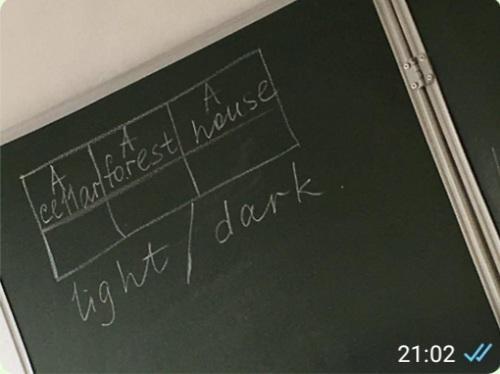 A A A
cellar forest house
light / dark.
21:02